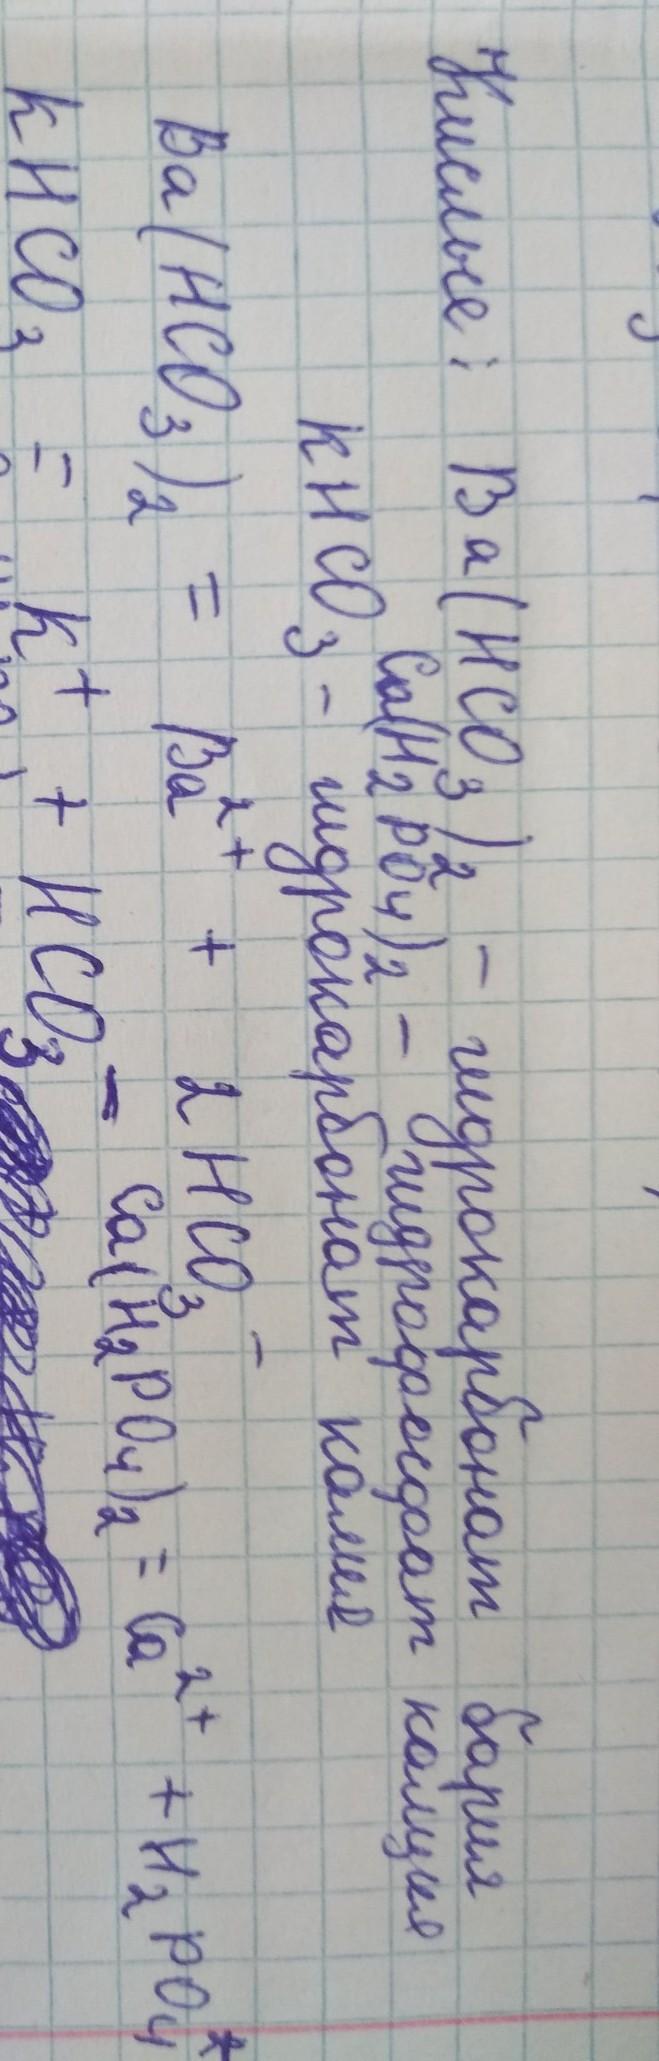 Кислые: Ba(HCO3)2 - гидрокарбонат бария
Ca(H2PO4)2 - гидрофосфат кальция
KHCO3 - гидрокарбонат калия
Ba(HCO3)2 = Ba2+ + 2HCO3-
Ca(H2PO4)2 = Ca2+ + H2PO4
KHCO3 = K+ + HCO3-